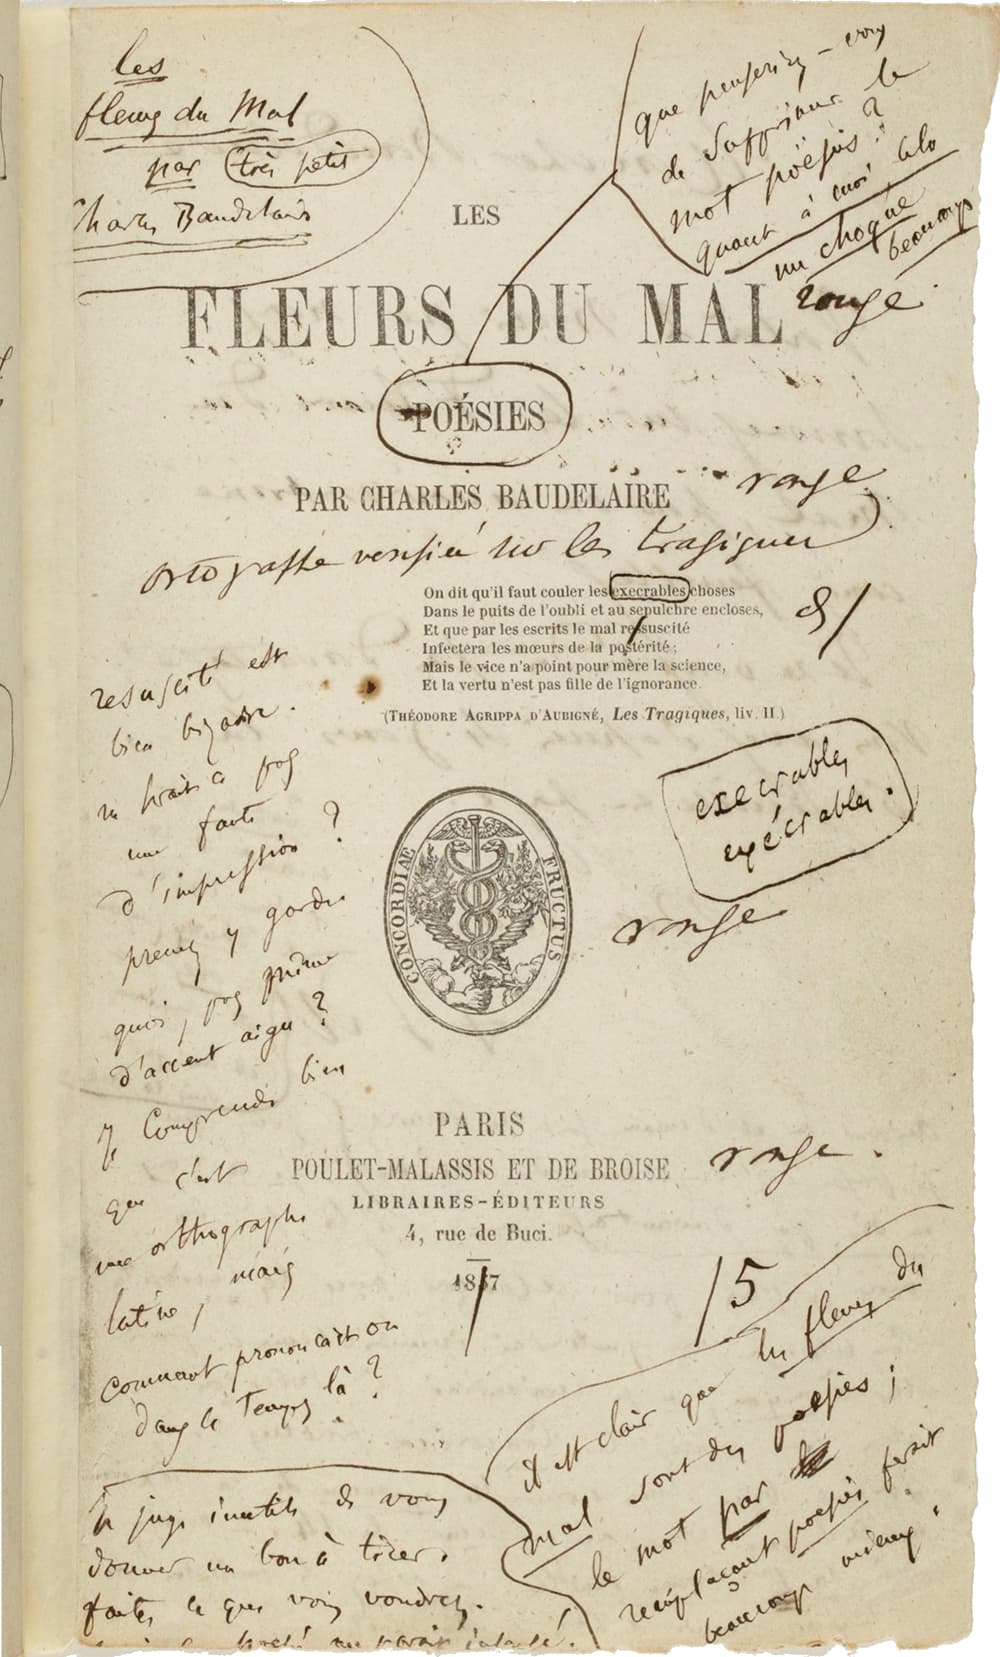 les
fleurs du Mal
par très petit
Charles Baudelaire
que penseriez-vous
de supprimer le
mot poësies ?
quant à moi cela
me choque
beaucoup
rouge
LES
FLEURS DU MAL
POÉSIES
PAR CHARLES BAUDELAIRE
rouge
ortografhe verifiée sur les Tragiques
On dit qu'il faut couler les execrables choses
Dans le puits de l'oubli et au sepulchre encloses,
Et que par les escrits le mal ressuscité
Infectera les mœurs de la postérité ;
Mais le vice n'a point pour mère la science,
Et la vertu n'est pas fille de l'ignorance.
(THÉODORE AGRIPPA D'AUBIGNÉ, Les Tragiques, liv. II.)
resuscité est
bien bizarre.
ne serait ce pas
une faute
d'impression ?
prenez y garde
quoi, pas même
d'accent aigu ?
Je comprends bien
que c'est
une orthographe
latine, mais
comment prononçait on
dans le temps là ?
execrables
exécrables.
rouge
CONCORDIAE FRUCTUS
PARIS
POULET-MALASSIS ET DE BROISE
rouge.
LIBRAIRES-ÉDITEURS
4, rue de Buci.
1857
/5
il est clair que les fleurs du
mal sont des poesies ;
le mot par
remplaçant poesies ferait
beaucoup mieux.
Je juge inutile de vous
donner un bon à tirer.
faites ce que vous voudrez.